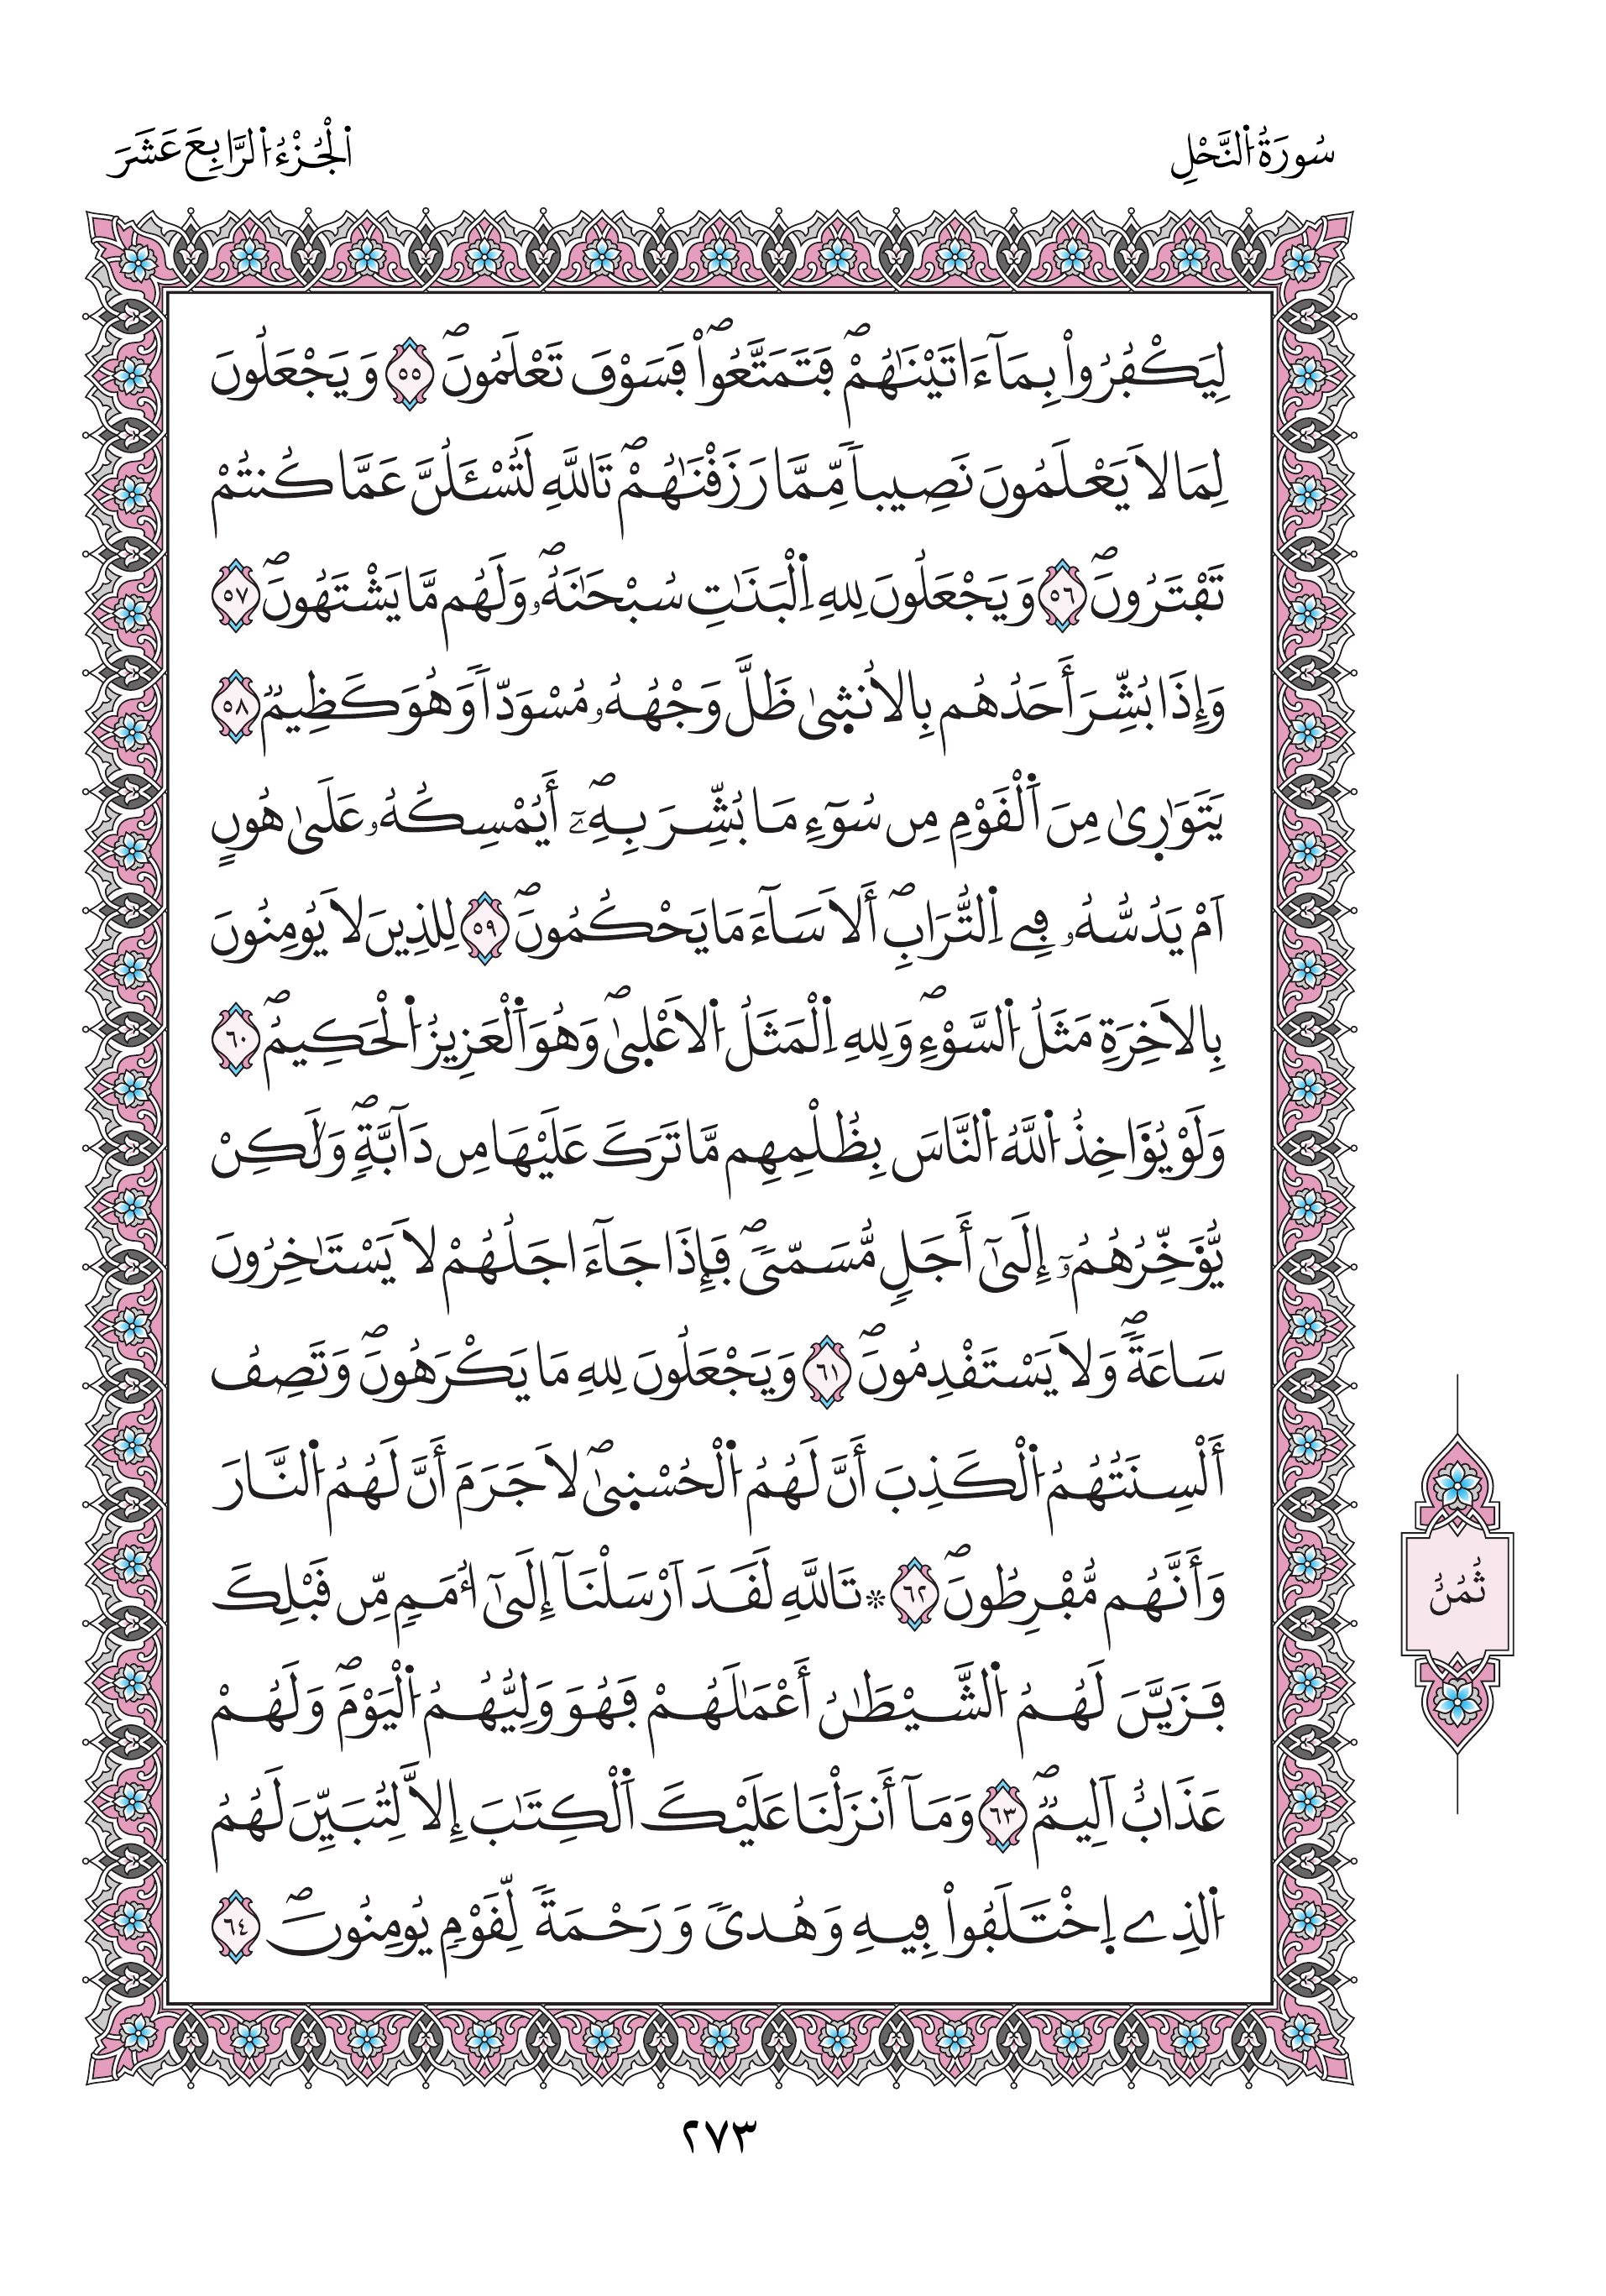 سُورَةُ النَّحْلِ
الْجُزْءُ الرَّابِعَ عَشَرَ
لِيَكْفُرُواْ بِمَآ ءَاتَيْنَٰهُمْۖ فَتَمَتَّعُواْۖ فَسَوْفَ تَعْلَمُونَۖ ٥٥ وَيَجْعَلُونَ
لِمَا لاَ يَعْلَمُونَ نَصِيباٗ مِّمَّا رَزَقْنَٰهُمْۖ تَاللَّهِ لَتُسْـَٔلُنَّ عَمَّا كُنتُمْ
تَفْتَرُونَۖ ٥٦ وَيَجْعَلُونَ لِلهِ اِ۬لْبَنَٰتِ سُبْحَٰنَهُۥۖ وَلَهُم مَّا يَشْتَهُونَۖ ٥٧
وَإِذَا بُشِّرَ أَحَدُهُم بِالُانث۪يٰ ظَلَّ وَجْهُهُۥ مُسْوَدّاٗ وَهُوَ كَظِيمٞ ٥٨
يَتَوَٰر۪يٰ مِنَ اَ۬لْقَوْمِ مِن سُوٓءِ مَا بُشِّرَ بِهِۦٓۖ أَيُمْسِكُهُۥ عَلَىٰ هُونٍ
اَمْ يَدُسُّهُۥ فِے اِ۬لتُّرَابِۖ أَلاَ سَآءَ مَا يَحْكُمُونَۖ ٥٩ لِلذِينَ لاَ يُومِنُونَ
بِالاَخِرَةِ مَثَلُ اُ۬لسَّوْءِۖ وَلِلهِ اِ۬لْمَثَلُ اُ۬لَاعْل۪يٰۖ وَهُوَ اَ۬لْعَزِيزُ اُ۬لْحَكِيمُۖ ٦٠
وَلَوْ يُؤَاخِذُ اُ۬للَّهُ اُ۬لنَّاسَ بِظُلْمِهِم مَّا تَرَكَ عَلَيْهَا مِن دَآبَّةٖۖ وَلَٰكِنْ
يُّؤَخِّرُهُمُۥٓ إِلَىٰٓ أَجَلٖ مُّسَمّىٗۖ فَإِذَا جَآءَ اجَلُهُمْ لاَ يَسْتَٰخِرُونَ
سَاعَةٗۖ وَلاَ يَسْتَقْدِمُونَۖ ٦١ وَيَجْعَلُونَ لِلهِ مَا يَكْرَهُونَۖ وَتَصِفُ
أَلْسِنَتُهُمُ اُ۬لْكَذِبَ أَنَّ لَهُمُ اُ۬لْحُسْن۪يٰۖ لاَ جَرَمَ أَنَّ لَهُمُ اُ۬لنَّارَ
وَأَنَّهُم مُّفْرِطُونَۖ ٦٢ ۞ تَاللَّهِ لَقَدَ اَرْسَلْنَآ إِلَىٰٓ أُمَمٖ مِّن قَبْلِكَ
فَزَيَّنَ لَهُمُ اُ۬لشَّيْطَٰنُ أَعْمَٰلَهُمْ فَهُوَ وَلِيُّهُمُ اُ۬لْيَوْمَۖ وَلَهُمْ
عَذَابٌ اَلِيمٞۖ ٦٣ وَمَآ أَنزَلْنَا عَلَيْكَ اَ۬لْكِتَٰبَ إِلاَّ لِتُبَيِّنَ لَهُمُ
اُ۬لذِے اِ۪خْتَلَفُواْ فِيهِ وَهُدىٗ وَرَحْمَةٗ لِّقَوْمٖ يُومِنُونَۖ ٦٤
ثُمُنُ
٢٧٣